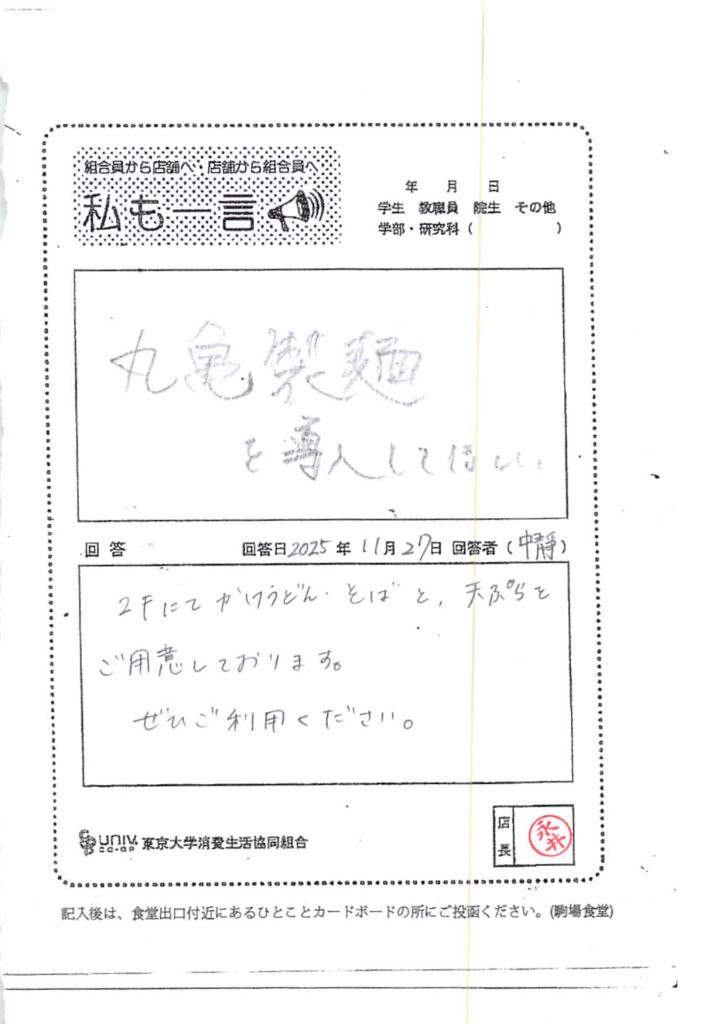 組合員から店舗へ・店舗から組合員へ
私も一言
年 月 日
学生 教職員 院生 その他
学部・研究科( )
丸亀製麺
を導入してほしい。
回答 回答日2025年11月27日 回答者(中靜)
2Fにてかけうどん・そばと、天ぷらを
ご用意しております。
ぜひご利用ください。
UNIV. CO-OP 東京大学消費生活協同組合
店長 永井
記入後は、食堂出口付近にあるひとことカードボードの所にご投函ください。(駒場食堂)